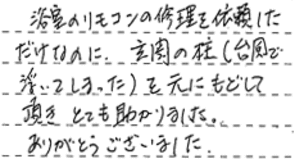 浴室のリモコンの修理を依頼した
だけなのに、玄関の柱(台風で
浮いてしまった)を元にもどして
頂きとても助かりました。
ありがとうございました。